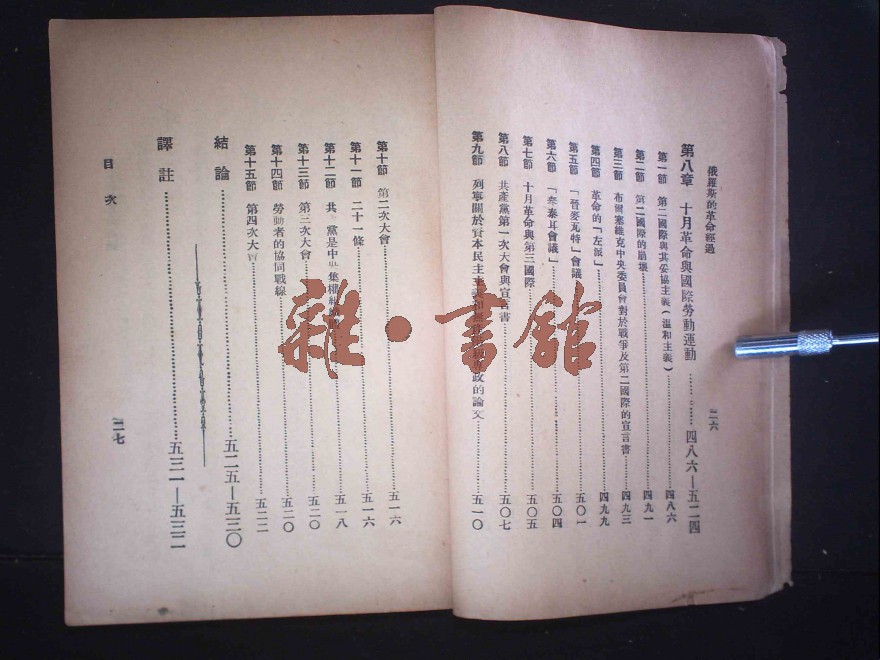 俄羅斯的革命經過
二六
第八章 十月革命與國際勞動運動………四八六—五二四
第一節 第二國際與其妥協主義(溫和主義)………四八六
第二節 第二國際的崩壞………四九一
第三節 布爾塞維克中央委員會對於戰爭及第二國際的宣言書………四九三
第四節 革命的「左派」………四九九
第五節 「晉麥瓦特」會議………五〇一
第六節 「奉泰耳會議」………五〇四
第七節 十月革命與第三國際………五〇五
第八節 共產黨第一次大會與宣言書………五〇七
第九節 列寧關於資本民主主義和無政的論文………五一〇
第十節 第二次大會………五一六
第十一節 二十一條………五一六
第十二節 共 黨是中 集權………五一八
第十三節 第三次大會………五二〇
第十四節 勞動者的協同戰線………五二〇
第十五節 第四次大會………五二二
結論………五二五—五三〇
譯註………五三一—五三二
目次
二七
雜·書館